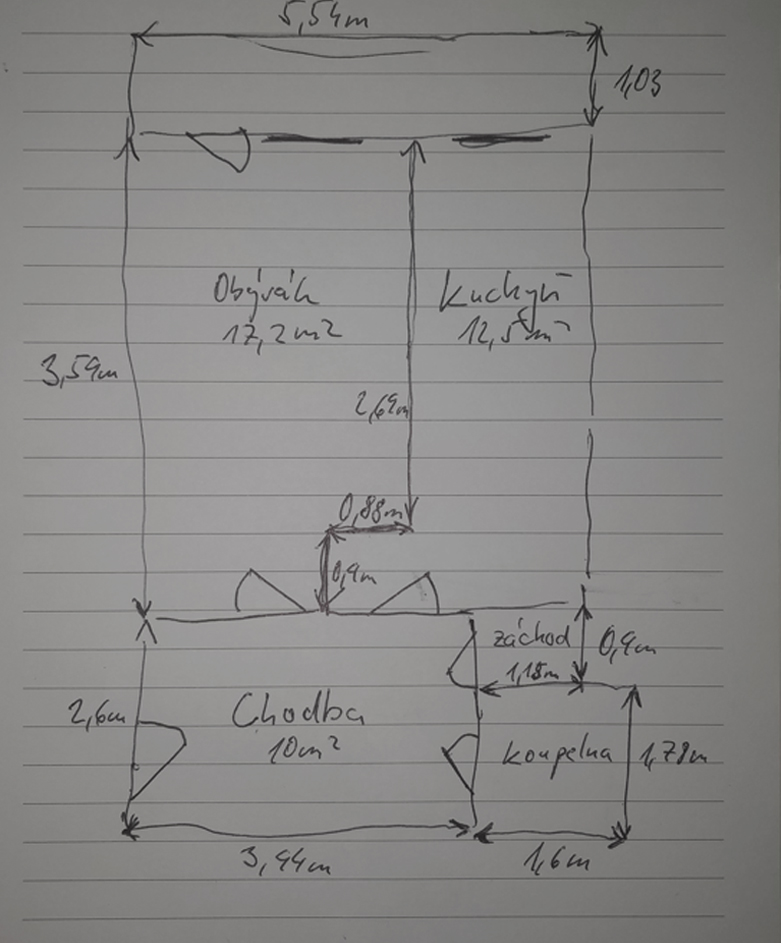 5,54m
1,03
Obývák
17,2m²
Kuchyň
12,5m²
3,59m
2,69m
0,88m
0,9m
záchod
1,18m
0,9m
2,6m
Chodba
10m²
koupelna
1,78m
3,94m
1,6m